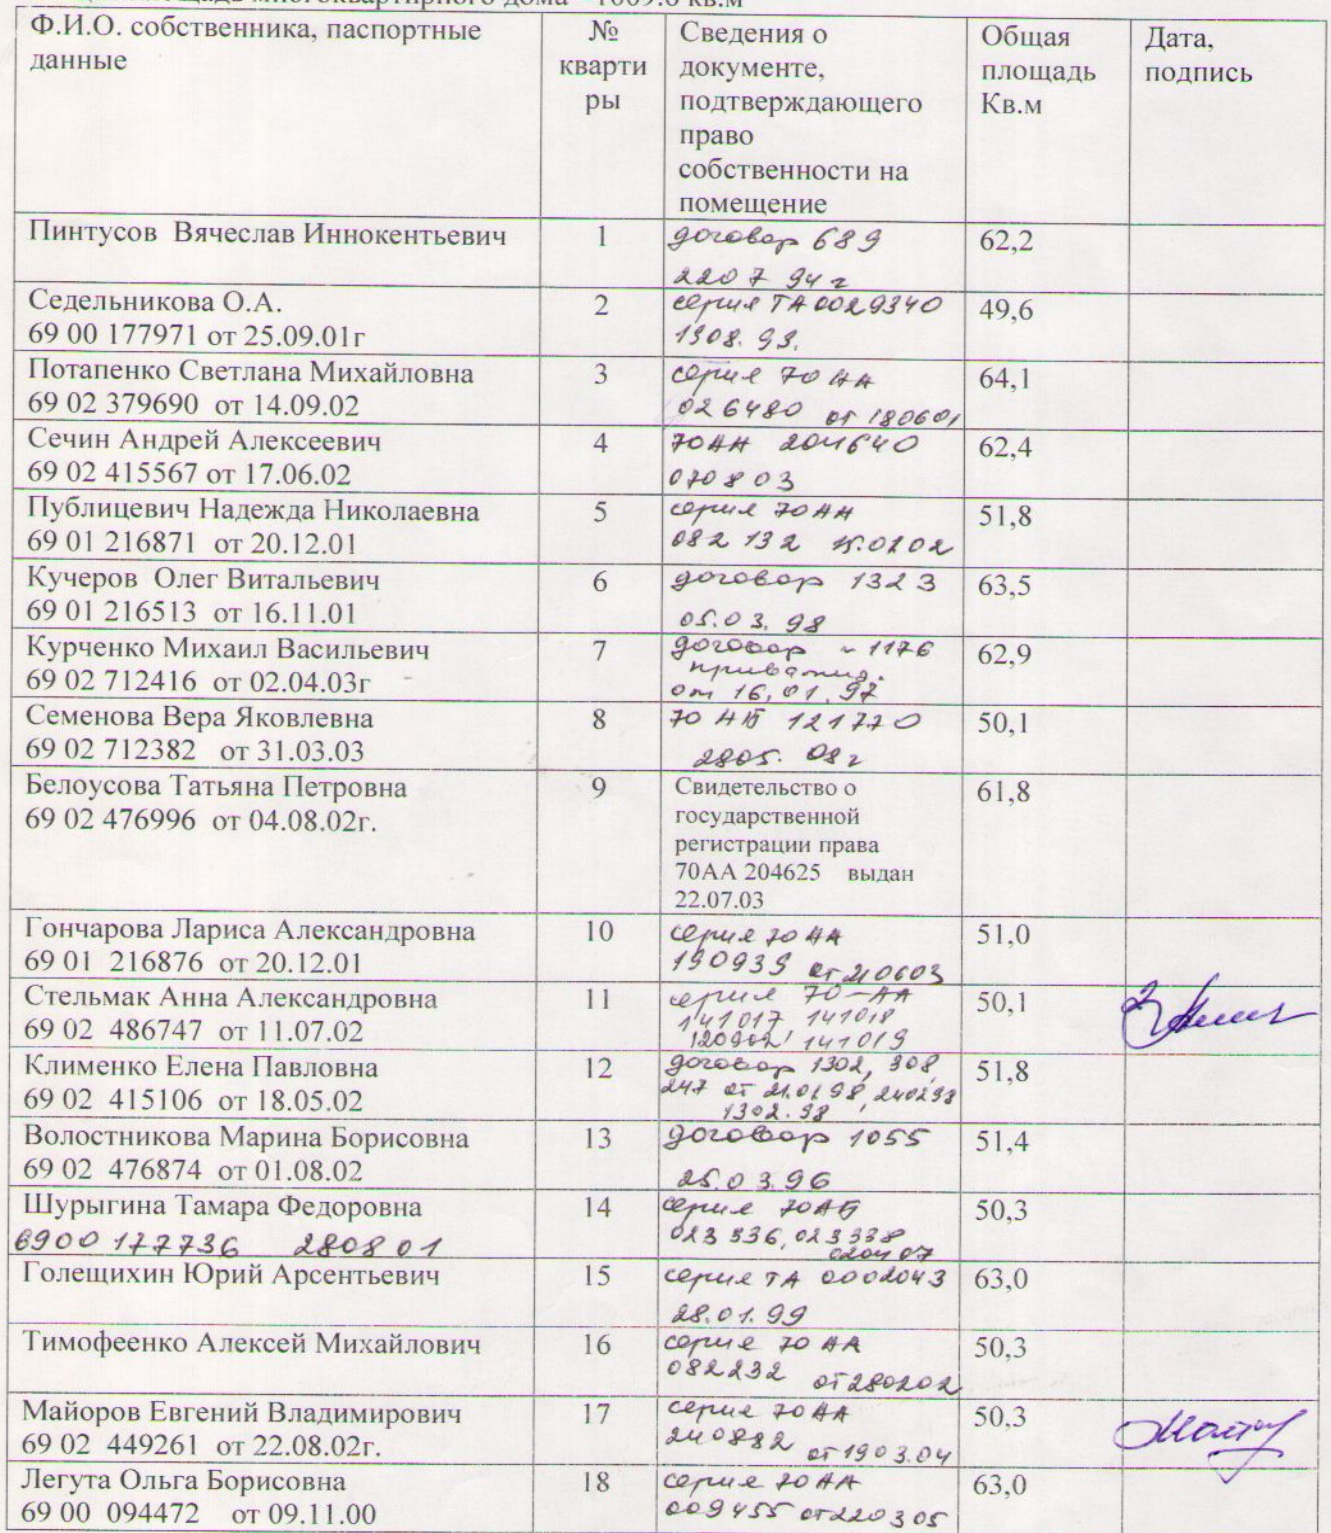 площадь многоквартирного дома - 1009.6 кв.м
Ф.И.О. собственника, паспортные данные
№ кварти ры
Сведения о документе, подтверждающего право собственности на помещение
Общая площадь Кв.м
Дата, подпись
Пинтусов Вячеслав Иннокентьевич
1
договор 689
2207 94г
62,2
Седельникова О.А.
69 00 177971 от 25.09.01г
2
серия ТА 0029340
1908. 93.
49,6
Потапенко Светлана Михайловна
69 02 379690 от 14.09.02
3
серия 70 АА
026480 от 180601
64,1
Сечин Андрей Алексеевич
69 02 415567 от 17.06.02
4
70АА 204640
070803
62,4
Публицевич Надежда Николаевна
69 01 216871 от 20.12.01
5
серия 70АА
082 132 15.0202
51,8
Кучеров Олег Витальевич
69 01 216513 от 16.11.01
6
договор 1323
05.03.98
63,5
Курченко Михаил Васильевич
69 02 712416 от 02.04.03г
7
договор 1176
приватиз.
от 16.01.97
62,9
Семенова Вера Яковлевна
69 02 712382 от 31.03.03
8
70 АБ 121770
2805. 08г
50,1
Белоусова Татьяна Петровна
69 02 476996 от 04.08.02г.
9
Свидетельство о
государственной
регистрации права
70АА 204625 выдан
22.07.03
61,8
Гончарова Лариса Александровна
69 01 216876 от 20.12.01
10
серия 70 АА
190939 от 210603
51,0
Стельмак Анна Александровна
69 02 486747 от 11.07.02
11
серия 70-АА
141017 141018
120902, 141019
50,1
Клименко Елена Павловна
69 02 415106 от 18.05.02
12
договор 1302, 308,
247 от 21.01 98, 240298
1302.98
51,8
Волостникова Марина Борисовна
69 02 476874 от 01.08.02
13
договор 1055
25.03.96
51,4
Шурыгина Тамара Федоровна
6900 177736 280801
14
серия 70АБ
023 336, 023338
020407
50,3
Голещихин Юрий Арсентьевич
15
серия ТА 0002043
28.01.99
63,0
Тимофеенко Алексей Михайлович
16
серия 70 АА
082232 от 280202
50,3
Майоров Евгений Владимирович
69 02 449261 от 22.08.02г.
17
серия 70АА
240882 от 1903.04
50,3
Легута Ольга Борисовна
69 00 094472 от 09.11.00
18
серия 70АА
009455 от 220305
63,0